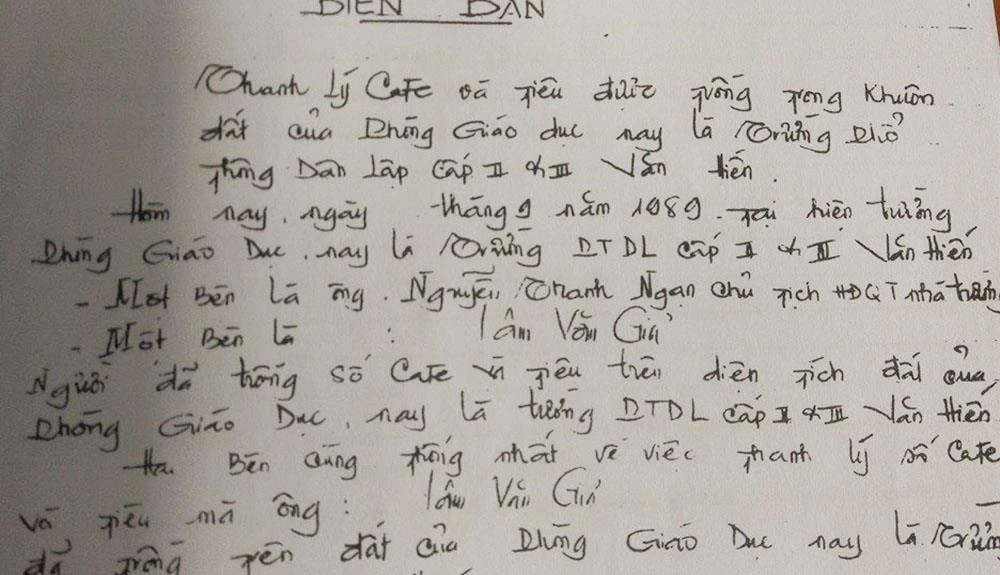 BIÊN BẢN
Thanh lý Cafe và tiêu được trồng trong khuôn
đất của Phòng Giáo dục nay là Trường Phổ
thông Dân lập cấp II & III Văn Hiến.
Hôm nay, ngày tháng 9 năm 1989. Tại hiện trường
Phòng Giáo Dục, nay là Trường PTDL cấp II & III Văn Hiến
- Một Bên là ông. Nguyễn Thanh Ngạn chủ tịch HĐQT nhà trường
- Một Bên là : Lâm Văn Giá
Người đã trồng số Cafe và tiêu trên diện tích đất của
Phòng Giáo Dục, nay là trường PTDL cấp II & III Văn Hiến.
Hai Bên cùng thống nhất về việc thanh lý số Cafe
và tiêu mà ông : Lâm Văn Giá
đã trồng trên đất của Phòng Giáo Dục nay là Trường